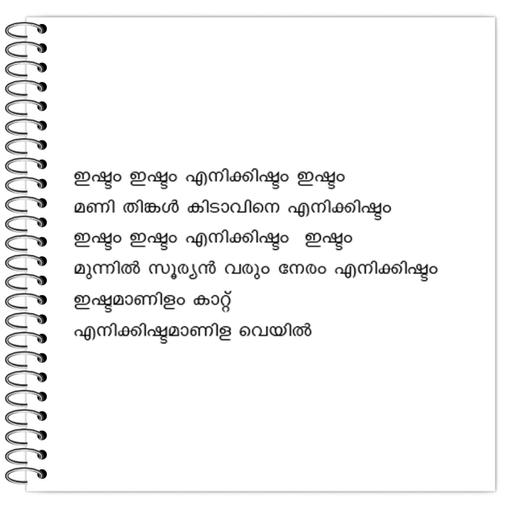 ഇഷ്ടം ഇഷ്ടം എനിക്കിഷ്ടം ഇഷ്ടം
മണി തിങ്കൾ കിടാവിനെ എനിക്കിഷ്ടം
ഇഷ്ടം ഇഷ്ടം എനിക്കിഷ്ടം ഇഷ്ടം
മുന്നിൽ സൂര്യൻ വരും നേരം എനിക്കിഷ്ടം
ഇഷ്ടമാണിളം കാറ്റ്
എനിക്കിഷ്ടമാണിള വെയിൽ